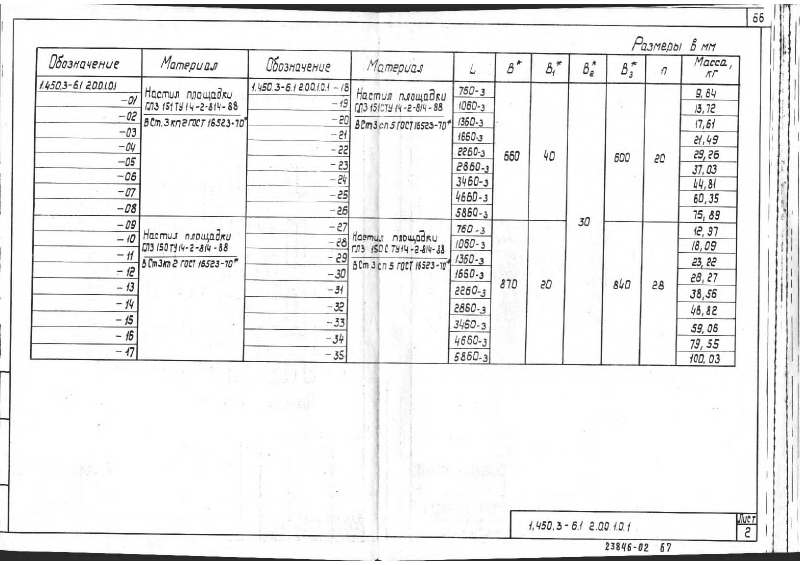 66
Размеры в мм
Обозначение Материал Обозначение Материал L B* B₁* B₂* B₃* n Масса, кг
1.450.3-6.1 2.0.0.1.0.1 Настил площадки ПЛЗ 151 ТУ 14-2-814-88 В Ст.3 кп 2 ГОСТ 16523-70* 1.450.3-6.1 2.0.0.1.0.1 -18 Настил площадки ПЛЗ 151С ТУ 14-2-814-88 В Ст 3 сп 5 ГОСТ 16523-70* 760-3 660 40 30 600 20 9,84
-01 -19 1060-3 13,72
-02 -20 1360-3 17,61
-03 -21 1660-3 21,49
-04 -22 2260-3 29,26
-05 -23 2860-3 37,03
-06 -24 3460-3 44,81
-07 -25 4660-3 60,35
-08 -26 5860-3 75,89
-09 Настил площадки ПЛЗ 150 ТУ 14-2-814-88 В Ст 3 кп 2 ГОСТ 16523-70* -27 Настил площадки ПЛЗ 150С ТУ 14-2-814-88 В Ст 3 сп 5 ГОСТ 16523-70* 760-3 870 20 840 28 12,97
-10 -28 1060-3 18,09
-11 -29 1360-3 23,22
-12 -30 1660-3 28,27
-13 -31 2260-3 38,56
-14 -32 2860-3 48,82
-15 -33 3460-3 59,06
-16 -34 4660-3 79,55
-17 -35 5860-3 100,03
1.450.3-6.1 2.0.0.1.0.1
Лист
2
23846-02 67